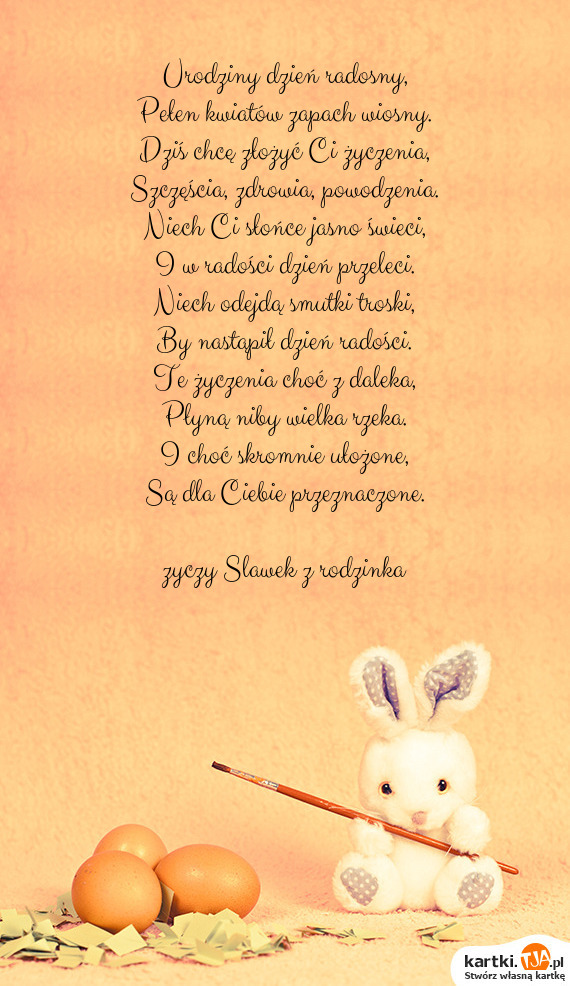 Urodziny dzień radosny,
Pełen kwiatów zapach wiosny.
Dziś chcę złożyć Ci życzenia,
Szczęścia, zdrowia, powodzenia.
Niech Ci słońce jasno świeci,
I w radości dzień przeleci.
Niech odejdą smutki troski,
By nastąpił dzień radości.
Te życzenia choć z daleka,
Płyną niby wielka rzeka.
I choć skromnie ułożone,
Są dla Ciebie przeznaczone.
zyczy Slawek z rodzinka
kartki.TJA.pl
Stwórz własną kartkę